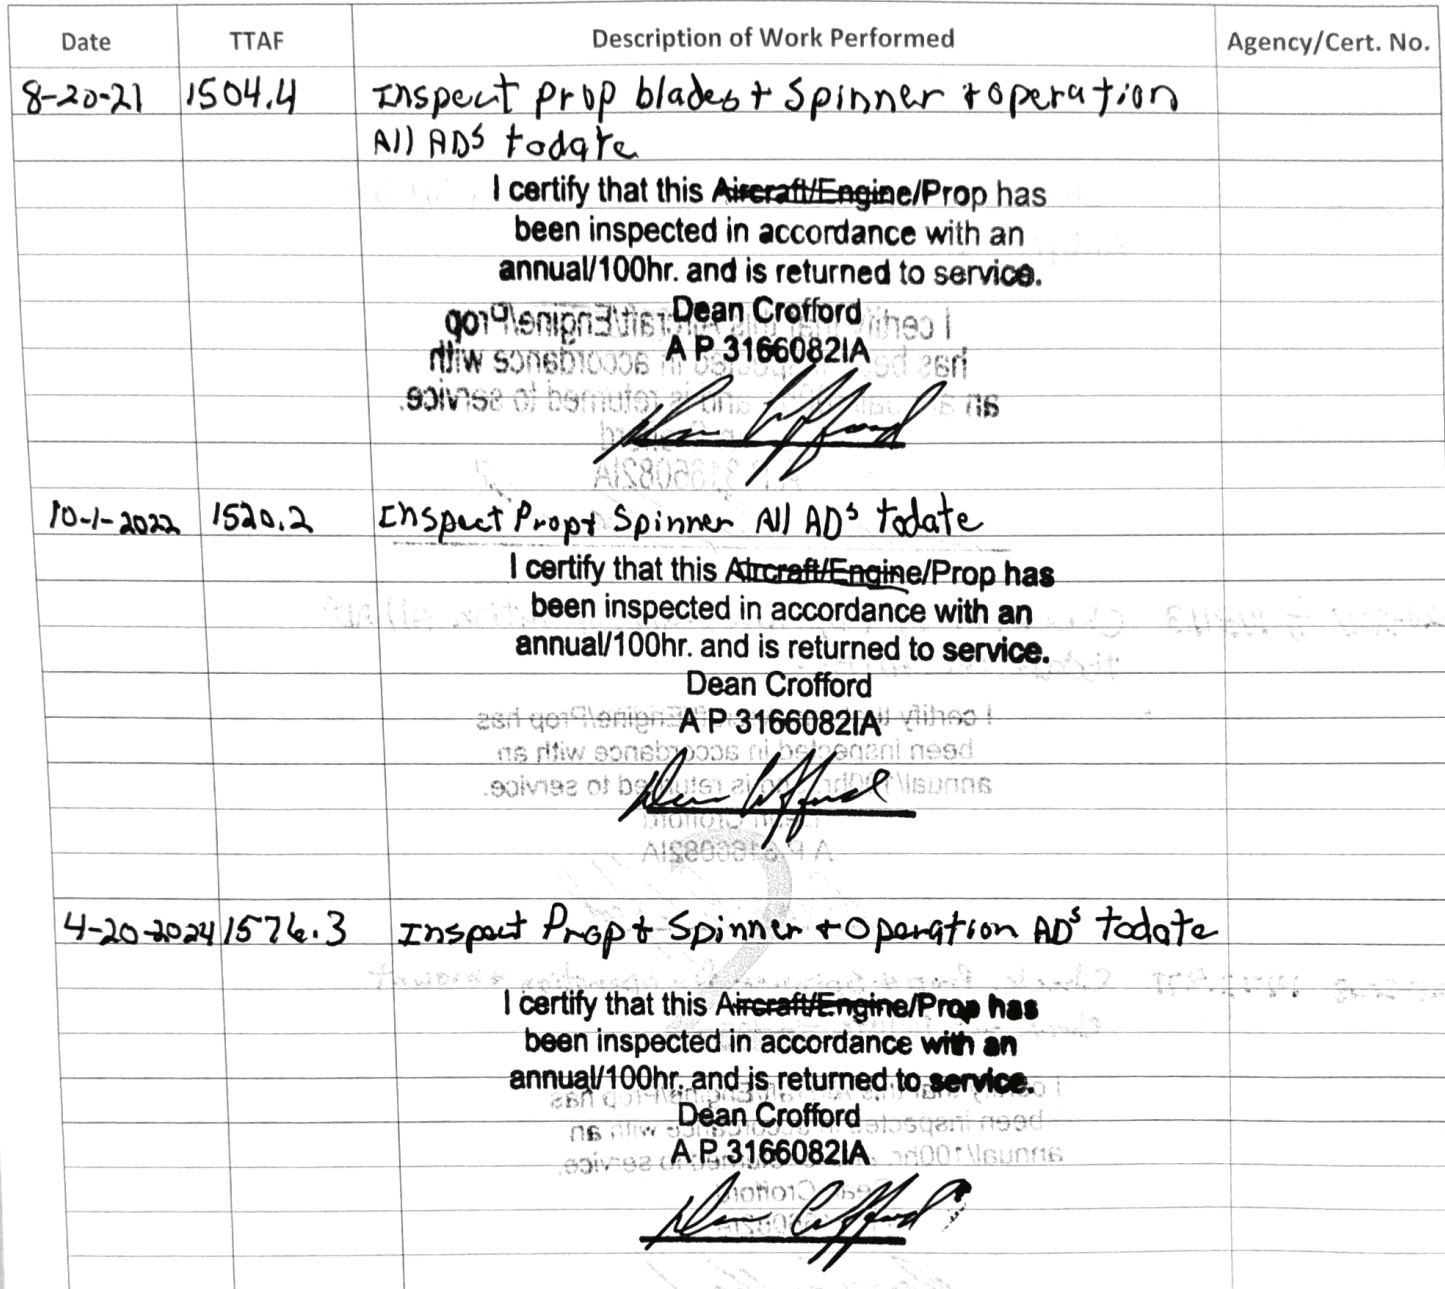 Date TTAF Description of Work Performed Agency/Cert. No.
8-20-21 1504.4 Inspect prop blades + Spinner + operation
All ADs todate
I certify that this Aircraft/Engine/Prop has
been inspected in accordance with an
annual/100hr. and is returned to service.
Dean Crofford
A P 3166082IA
Dean Crofford
10-1-2022 1520.2 Inspect Prop + Spinner All ADs todate
I certify that this Aircraft/Engine/Prop has
been inspected in accordance with an
annual/100hr. and is returned to service.
Dean Crofford
A P 3166082IA
Dean Crofford
4-20-2024 1576.3 Inspect Prop + Spinner + Operation ADs todate
I certify that this Aircraft/Engine/Prop has
been inspected in accordance with an
annual/100hr. and is returned to service.
Dean Crofford
A P 3166082IA
Dean Crofford